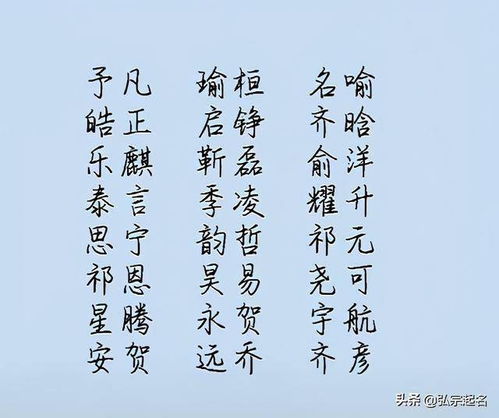 予凡 瑜桓 名喻
皓正 启铮 齐晗
乐麒 靳磊 俞洋
泰言 季凌 耀升
思宁 韵哲 祁元
祁恩 昊易 尧可
星腾 永贺 宇航
安贺 远乔 齐彦
头条 @弘宗起名